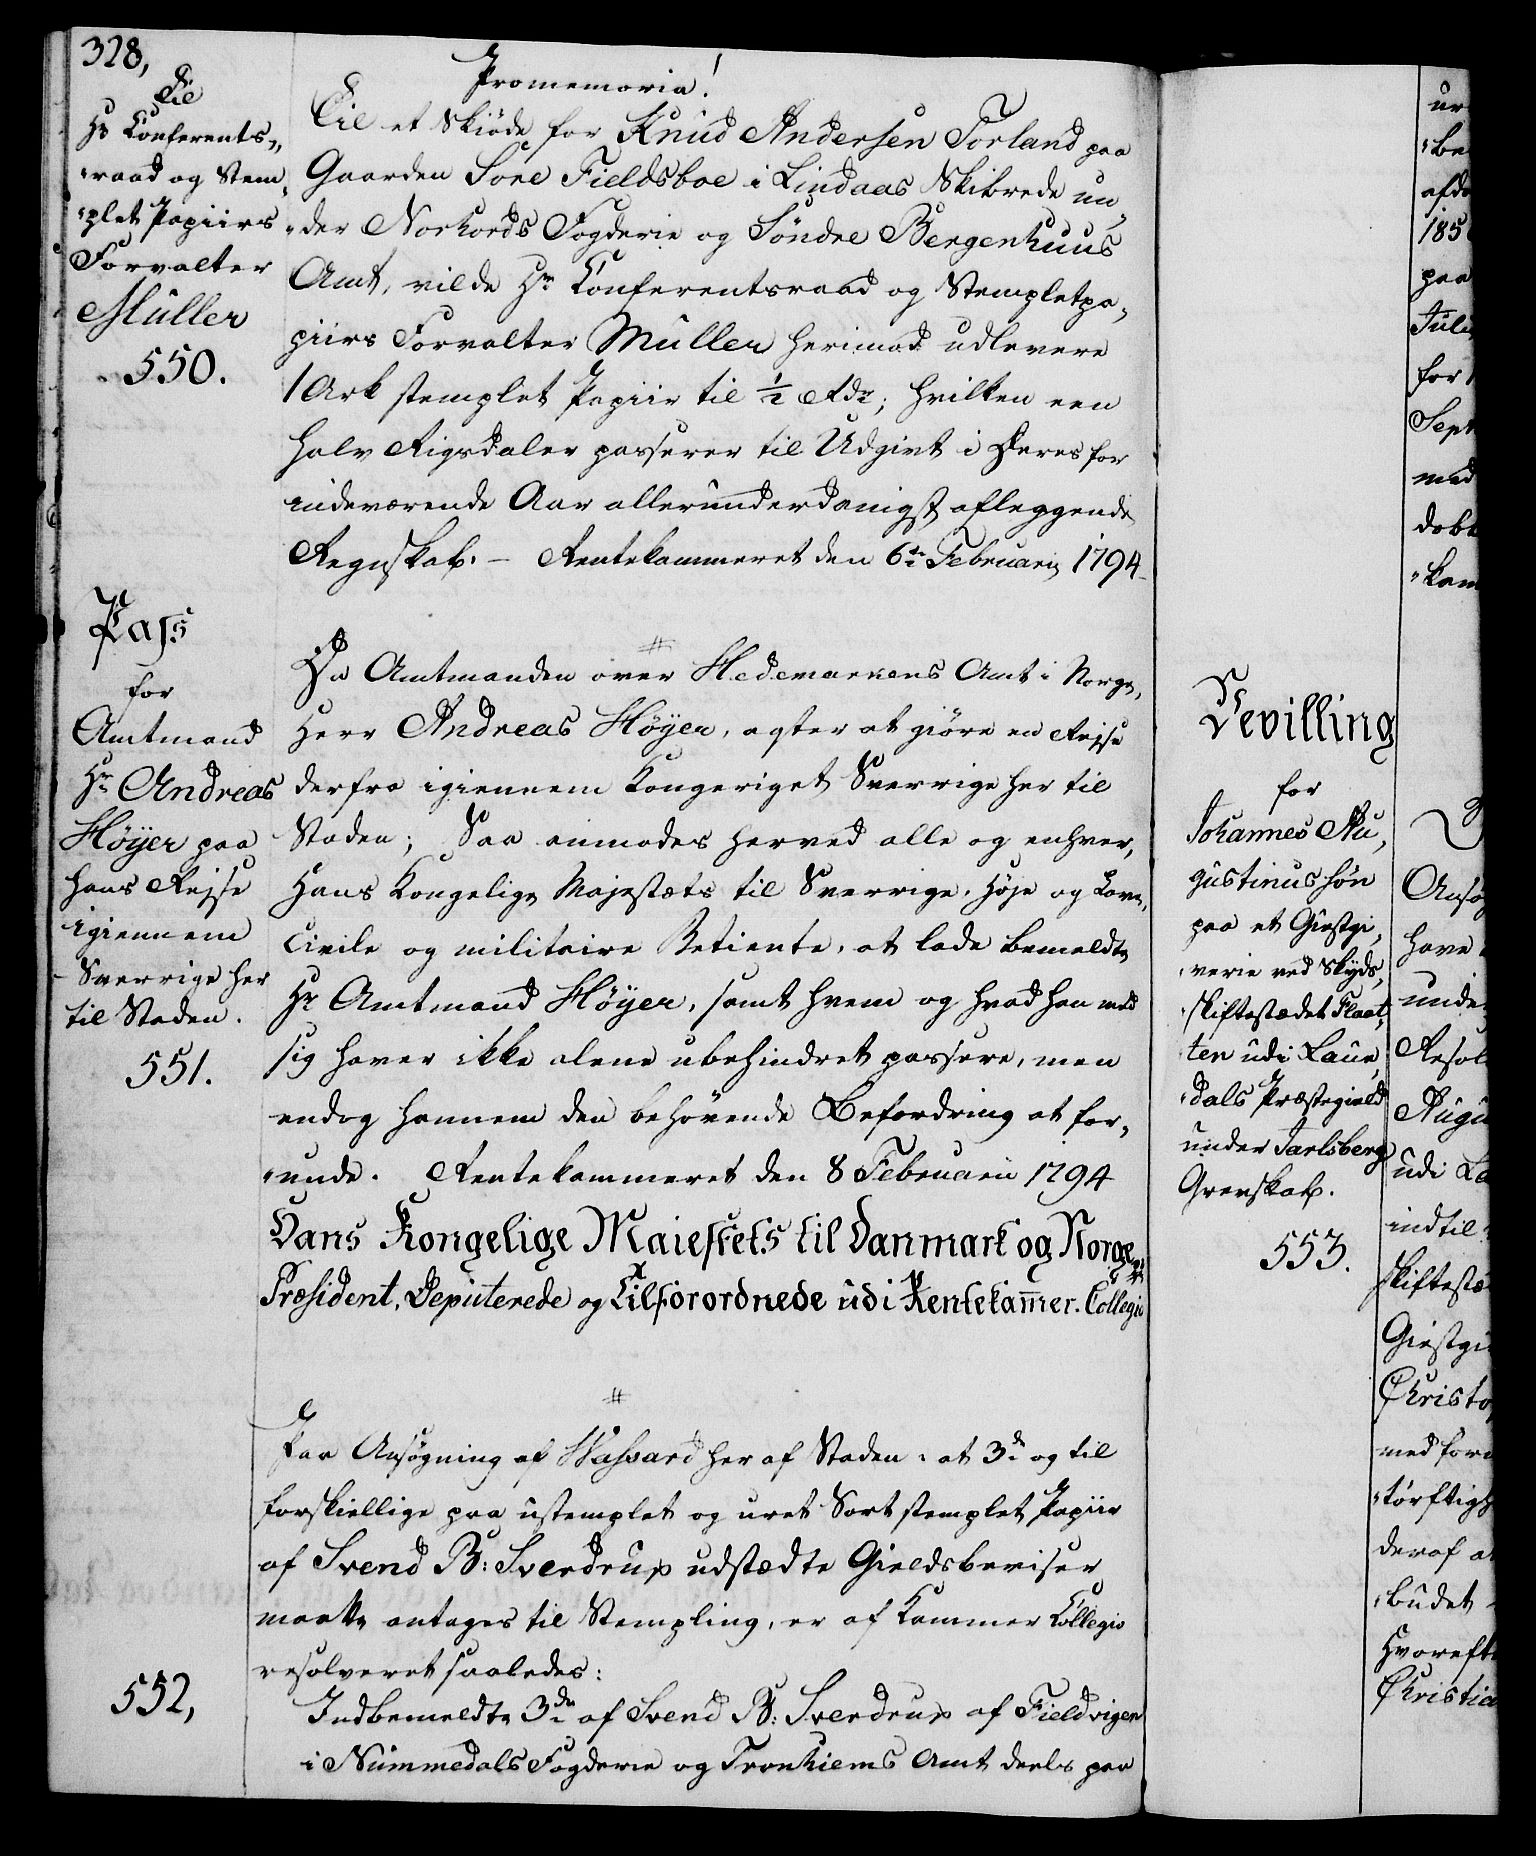 328,
Til
Hr Conferents„
„raad og Stem„
„plet Papiirs
Forvalter
Müller
550.
Promemoria!
Til et Skiøde for Knud Andersen Torland paa
Gaarden Sore Fieldsboe i Lindaas Skibrede un„
„der Norhords Fogderie og Søndre Bergenhuus
Amt, vilde Hr Conferentsraad og Stempletpa„
piirs Forvalter Müller herimod udlevere
1 Ark stemplet Papiir til ½ Rdr; hvilken een
halv Rigsdaler passerer til Udgivt i Deres for
indeværende Aar allerunderdanigst aflæggende
Regnskab. – Rentekammeret den 6te Februarii 1794
Pass
for
Amtmand
Hr Andreas
Höyer paa
hans Rejse
igiennem
Sverrige her
til Staden.
551.
#
Da Amtmanden over Hedemarkens Amt i Norge,
Herr Andreas Höyer, agter at giöre en Rejse
derfra igiennem Kongeriget Sverrige her til
Staden; Saa anmodes herved alle og enhver,
Hans Kongelige Majestæts til Sverrige, Høje og Lave,
Civile og militaire Betiente, at lade bemeldte
Hr Amtmand Höyer, samt hvem og hvad han med
sig haver ikke alene ubehindret passere, men
endog hannem den behövende Befordring at for„
„unde. Rentekammeret den 8 Februarii 1794
Hans Kongelige Maiestets til Danmark og Norge
Præsident, Deputerede og Tilforordnede udi Rentekammer-Collegio
#
552,
Paa Ansøgning af Wassard her af Staden: at 3de og til
forskiellige paa ustemplet og uret Sort stemplet Papiir
af Svend B: Sverdrup udstædte Gieldsbeviser
maatte antages til Stempling, er af Kammer Collegio
resolveret saaledes:
Indbemeldte 3de af Svend B: Sverdrup af Fieldvigen
i Nummedals Fogderie og Tronhiems Amt deels paa
Bevilling
for
Johannes Au„
gustinussøn
paa et Giestgi„
„verie ved Skyds„
„skiftestædet Flaat„
ten udi Laur„
„dals Præstegield
under Jarlsberg
Grevskab.
553.
ur
„be
afd
185
paa
Juli
for
Sept
med
dobe
„kam
Ansøg
have
unde
Resol
Augu
udi La
indtil
skiftestæ
Giestgi
Christo
med for
„törftig
deraf a
„budet
Hvoreft
Christia